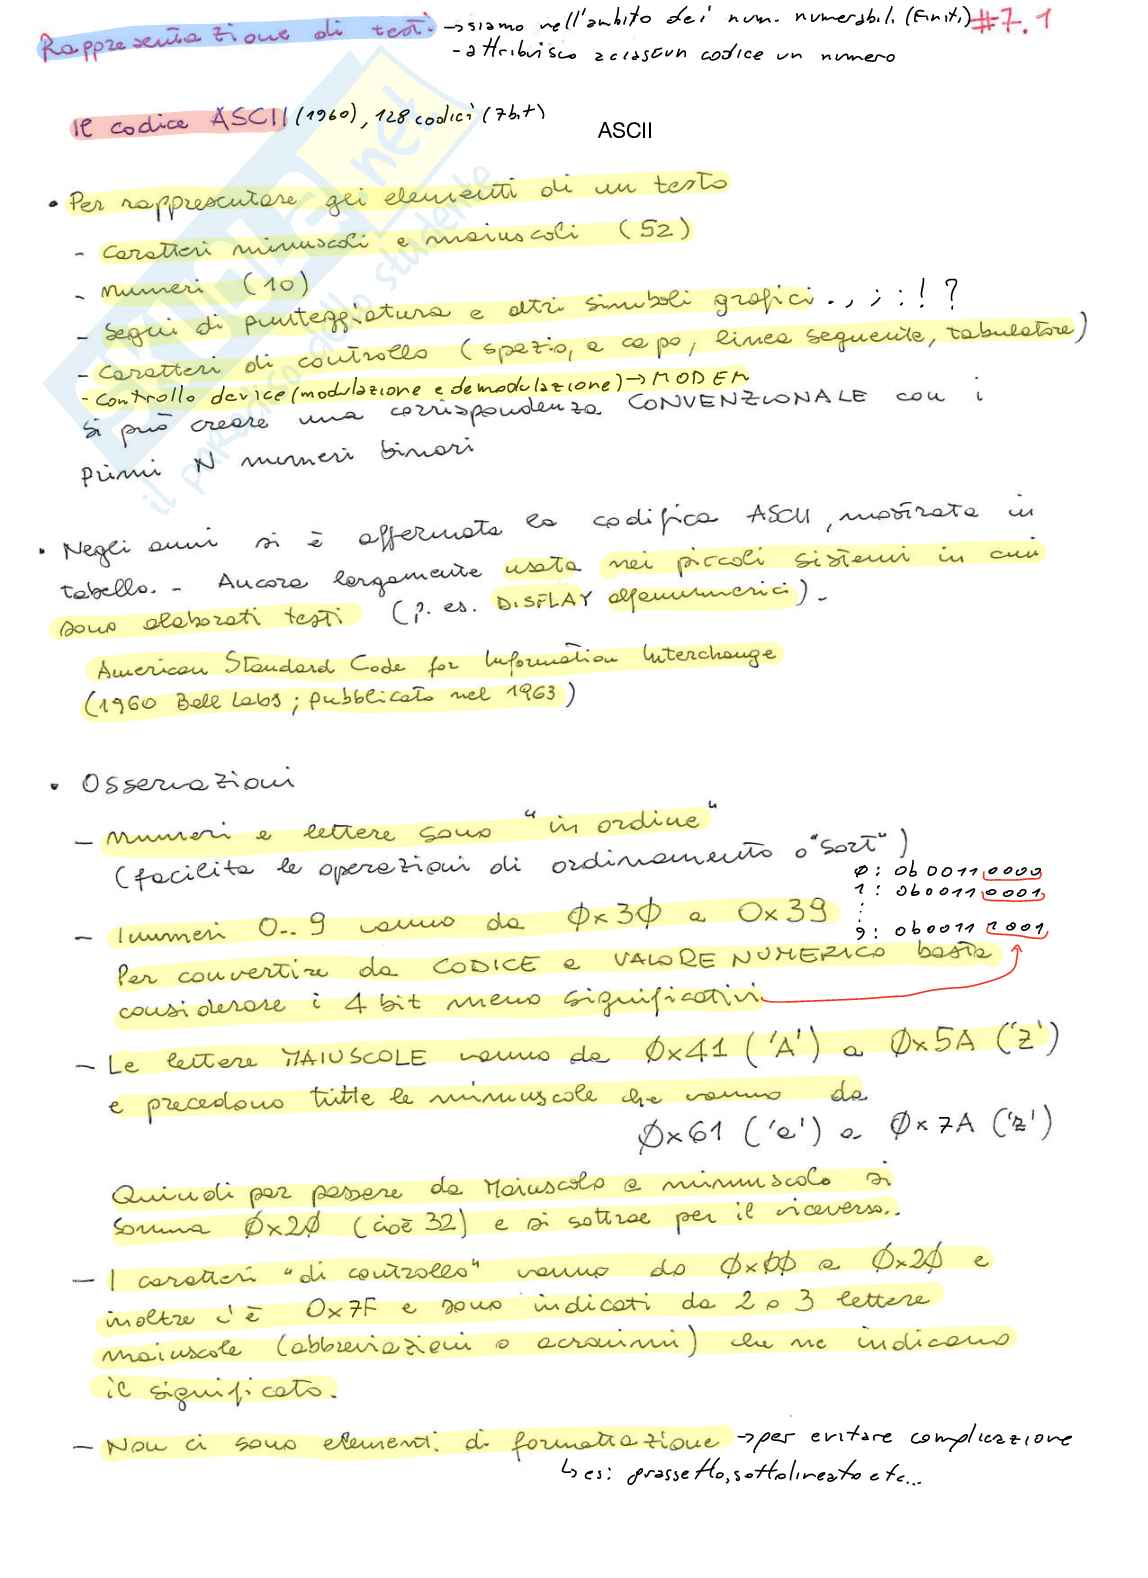 Rappresentazione di testi →siamo nell'ambito dei num. numerabili (Finiti) #7.1
- attribuisco a ciascun codice un numero
Il codice ASCII (1960), 128 codici (7bit)
ASCII
• Per rappresentare gli elementi di un testo
- caratteri minuscoli e maiuscoli (52)
- numeri (10)
- segni di punteggiatura e altri simboli grafici . , ; : ! ?
- caratteri di controllo (spazio, a capo, linea seguente, tabulatore)
- controllo device (modulazione e demodulazione) → MODEM
Si può creare una corrispondenza CONVENZIONALE con i
primi N numeri binari
• Negli anni si è affermata la codifica ASCII, mostrata in
tabella. - Ancora largamente usata nei piccoli sistemi in cui
sono elaborati testi (p. es. DISPLAY alfanumerici).
American Standard Code for Information Interchange
(1960 Bell Labs; pubblicato nel 1963)
• Osservazioni
- Numeri e lettere sono "in ordine"
(facilita le operazioni di ordinamento o "sort")
0: 0b 0011 0000
1: 0b0011 0001
:
9: 0b0011 1001
- I numeri 0..9 vanno da 0x30 a 0x39
Per convertire da CODICE a VALORE NUMERICO basta
considerare i 4 bit meno significativi
- Le lettere MAIUSCOLE vanno da 0x41 ('A') a 0x5A ('Z')
e precedono tutte le minuscole che vanno da
0x61 ('a') a 0x7A ('z')
Quindi per passare da Maiuscolo a minuscolo si
somma 0x20 (cioè 32) e si sottrae per il viceversa..
- I caratteri "di controllo" vanno da 0x00 a 0x20 e
inoltre c'è 0x7F e sono indicati da 2 o 3 lettere
maiuscole (abbreviazioni o acronimi) che ne indicano
il significato.
- Non ci sono elementi di formattazione →per evitare complicazione
↳ es: grassetto, sottolineato etc...
SKUOLA.net
il paradiso dello studente